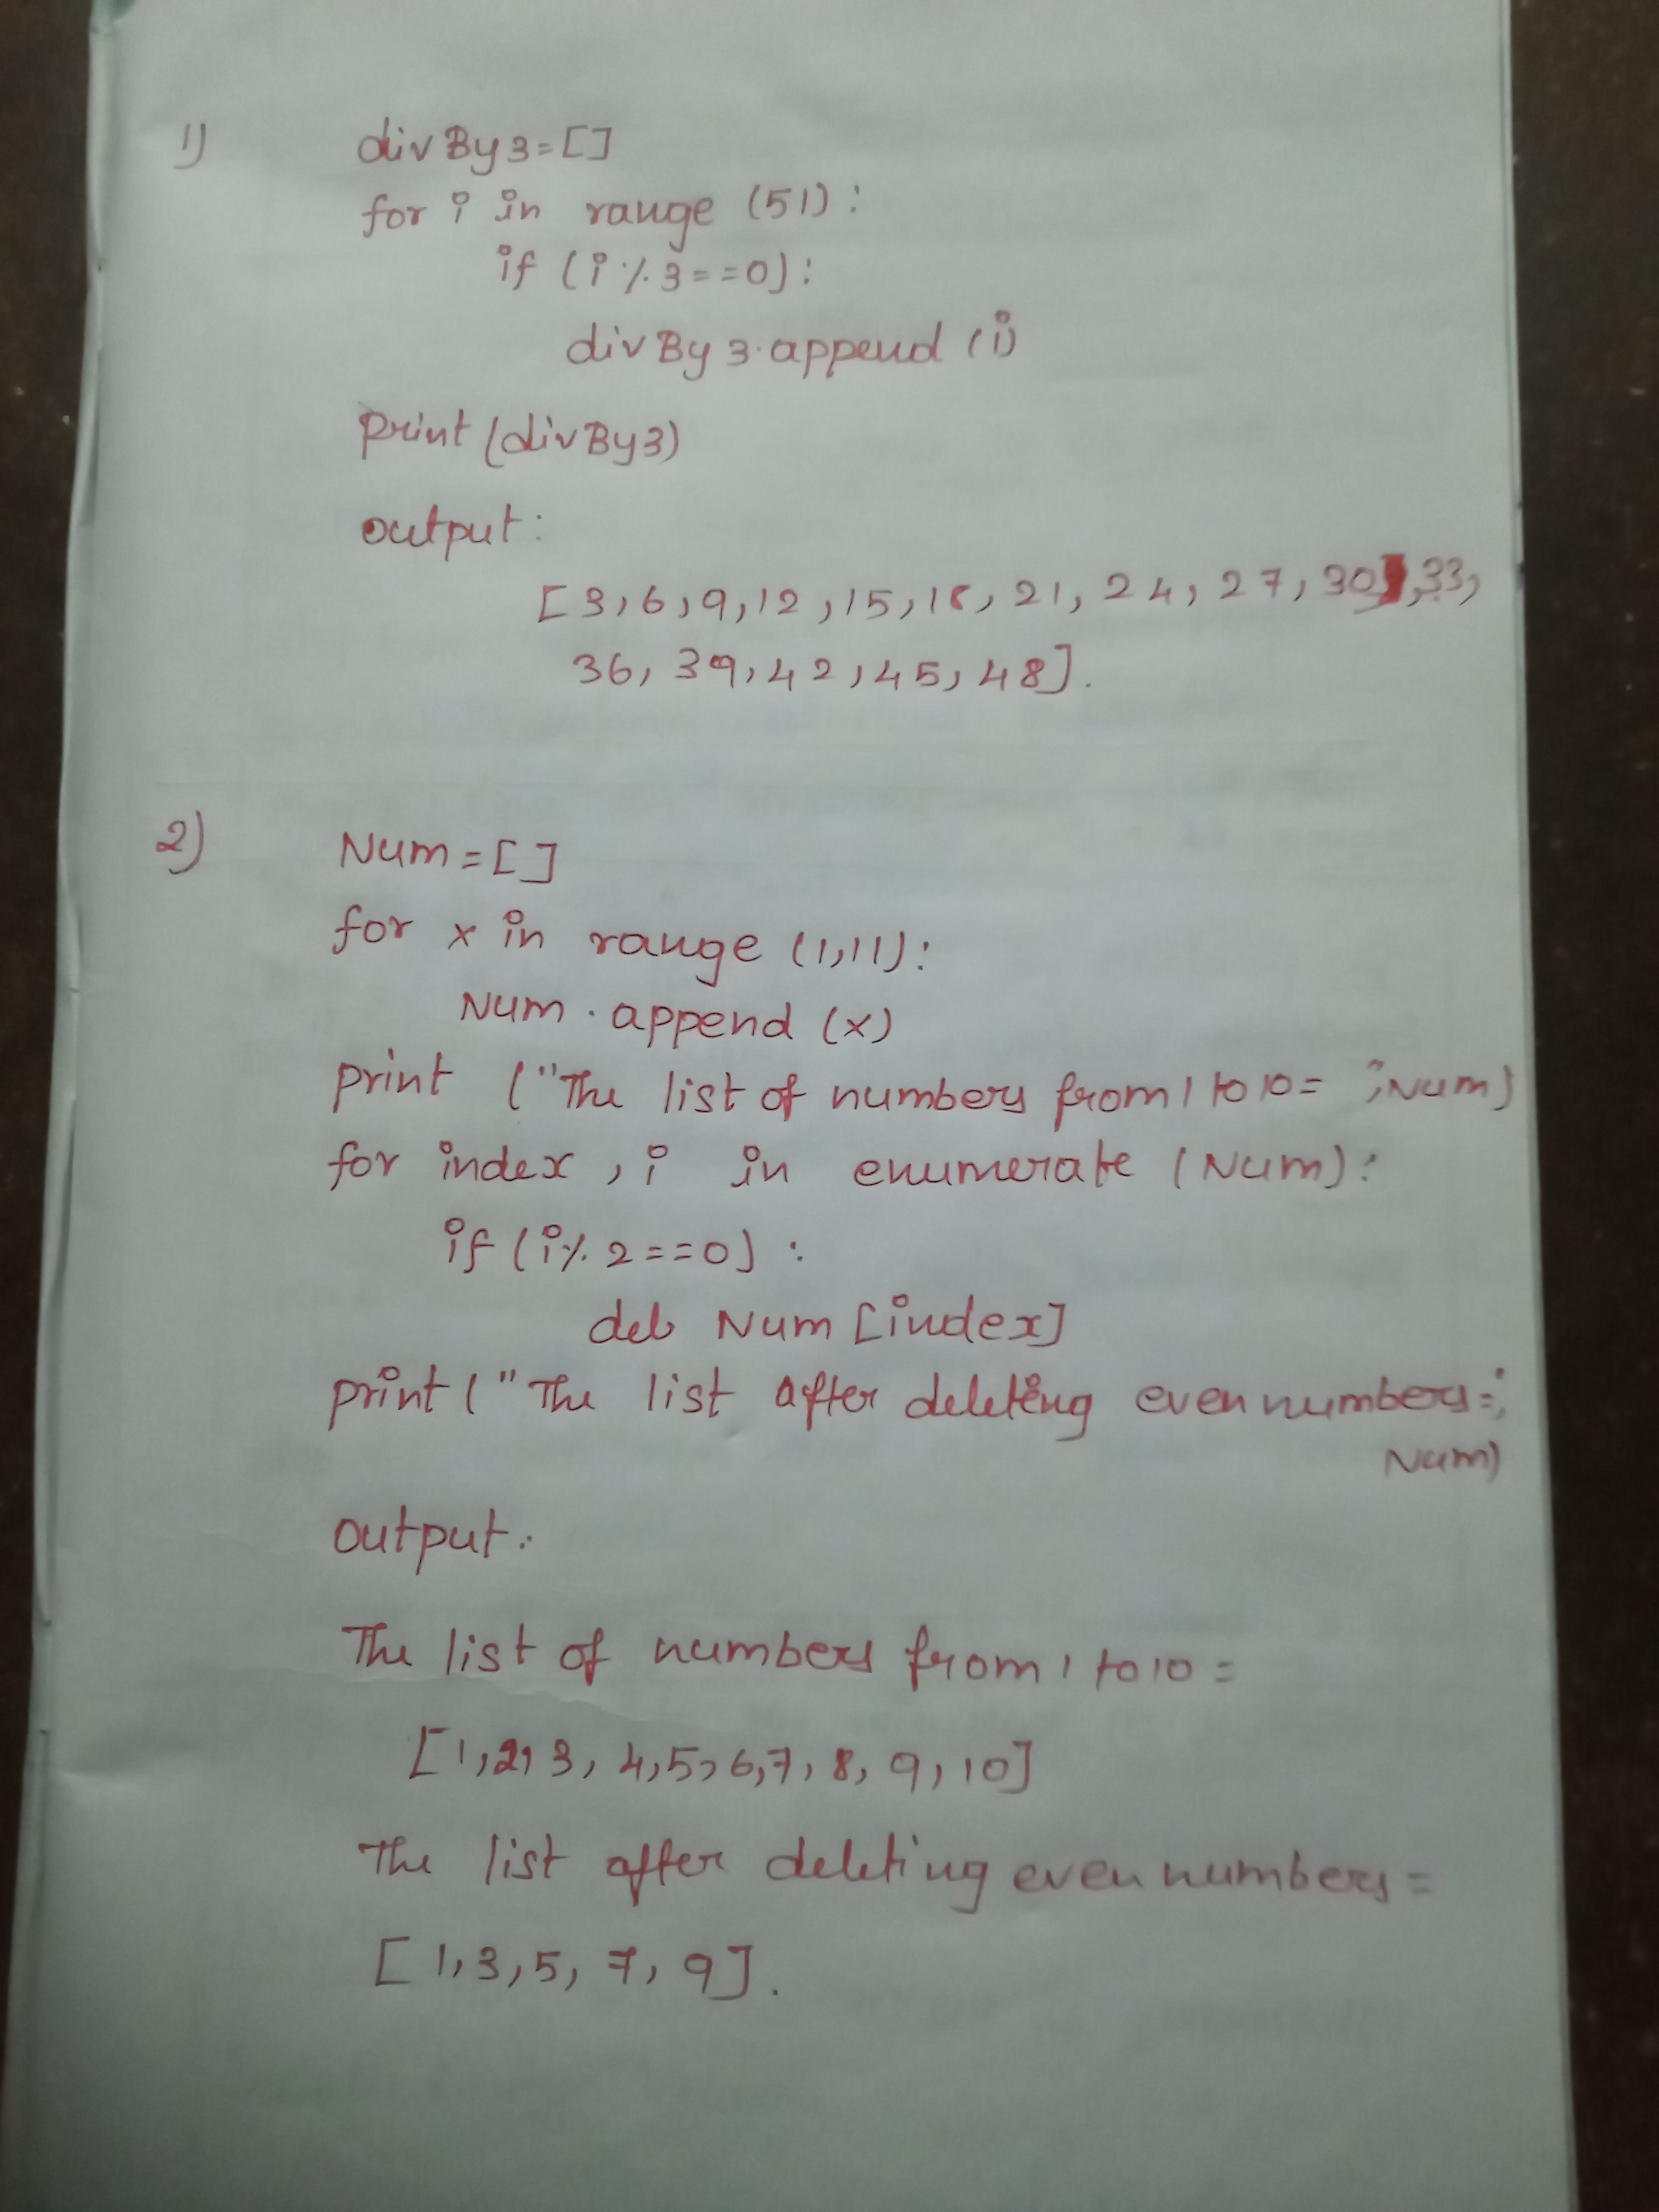 1) divBy3=[]
for i in range (51):
if (i%3==0):
divBy3.append(i)
print(divBy3)
output:
[3,6,9,12,15,18,21,24,27,30,33,
36,39,42,45,48].
2) Num=[]
for x in range (1,11):
Num.append(x)
print ("The list of numbers from 1 to 10= ",Num)
for index, i in enumerate (Num):
if (i%2==0):
del Num[index]
print("The list after deleting even numbers=",
Num)
output:
The list of numbers from 1 to 10=
[1,2,3,4,5,6,7,8,9,10]
The list after deleting even numbers=
[1,3,5,7,9].